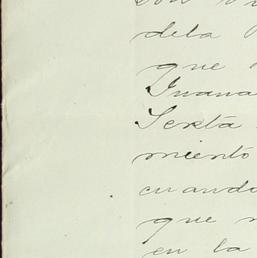 dela
que
Juana
Sexta
miento
cuando
que
en la